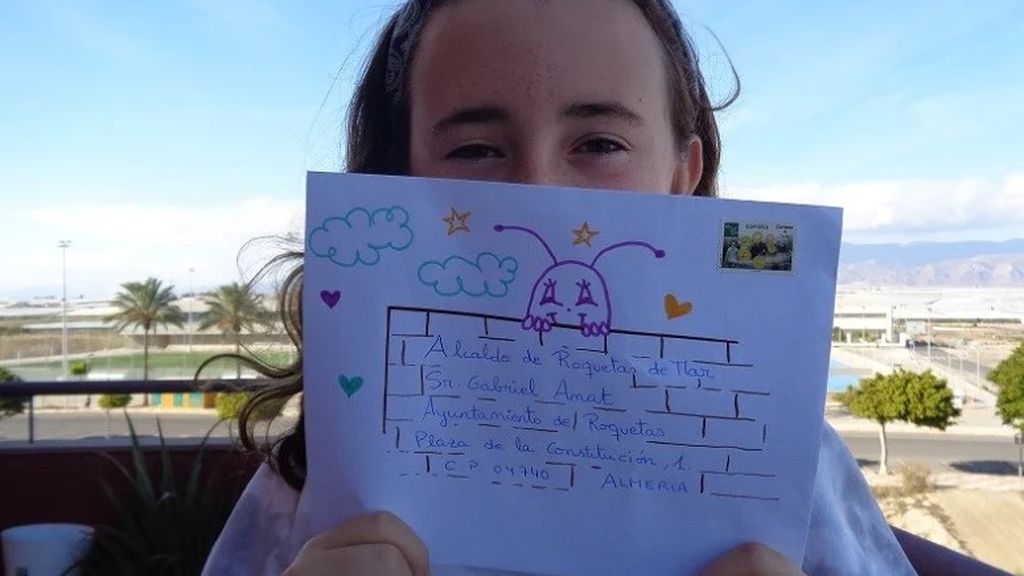 Alcalde de Roquetas de Mar
Sr. Gabriel Amat
Ayuntamiento de Roquetas
Plaza de la Constitución, 1.
C.P 04740 ALMERÍA